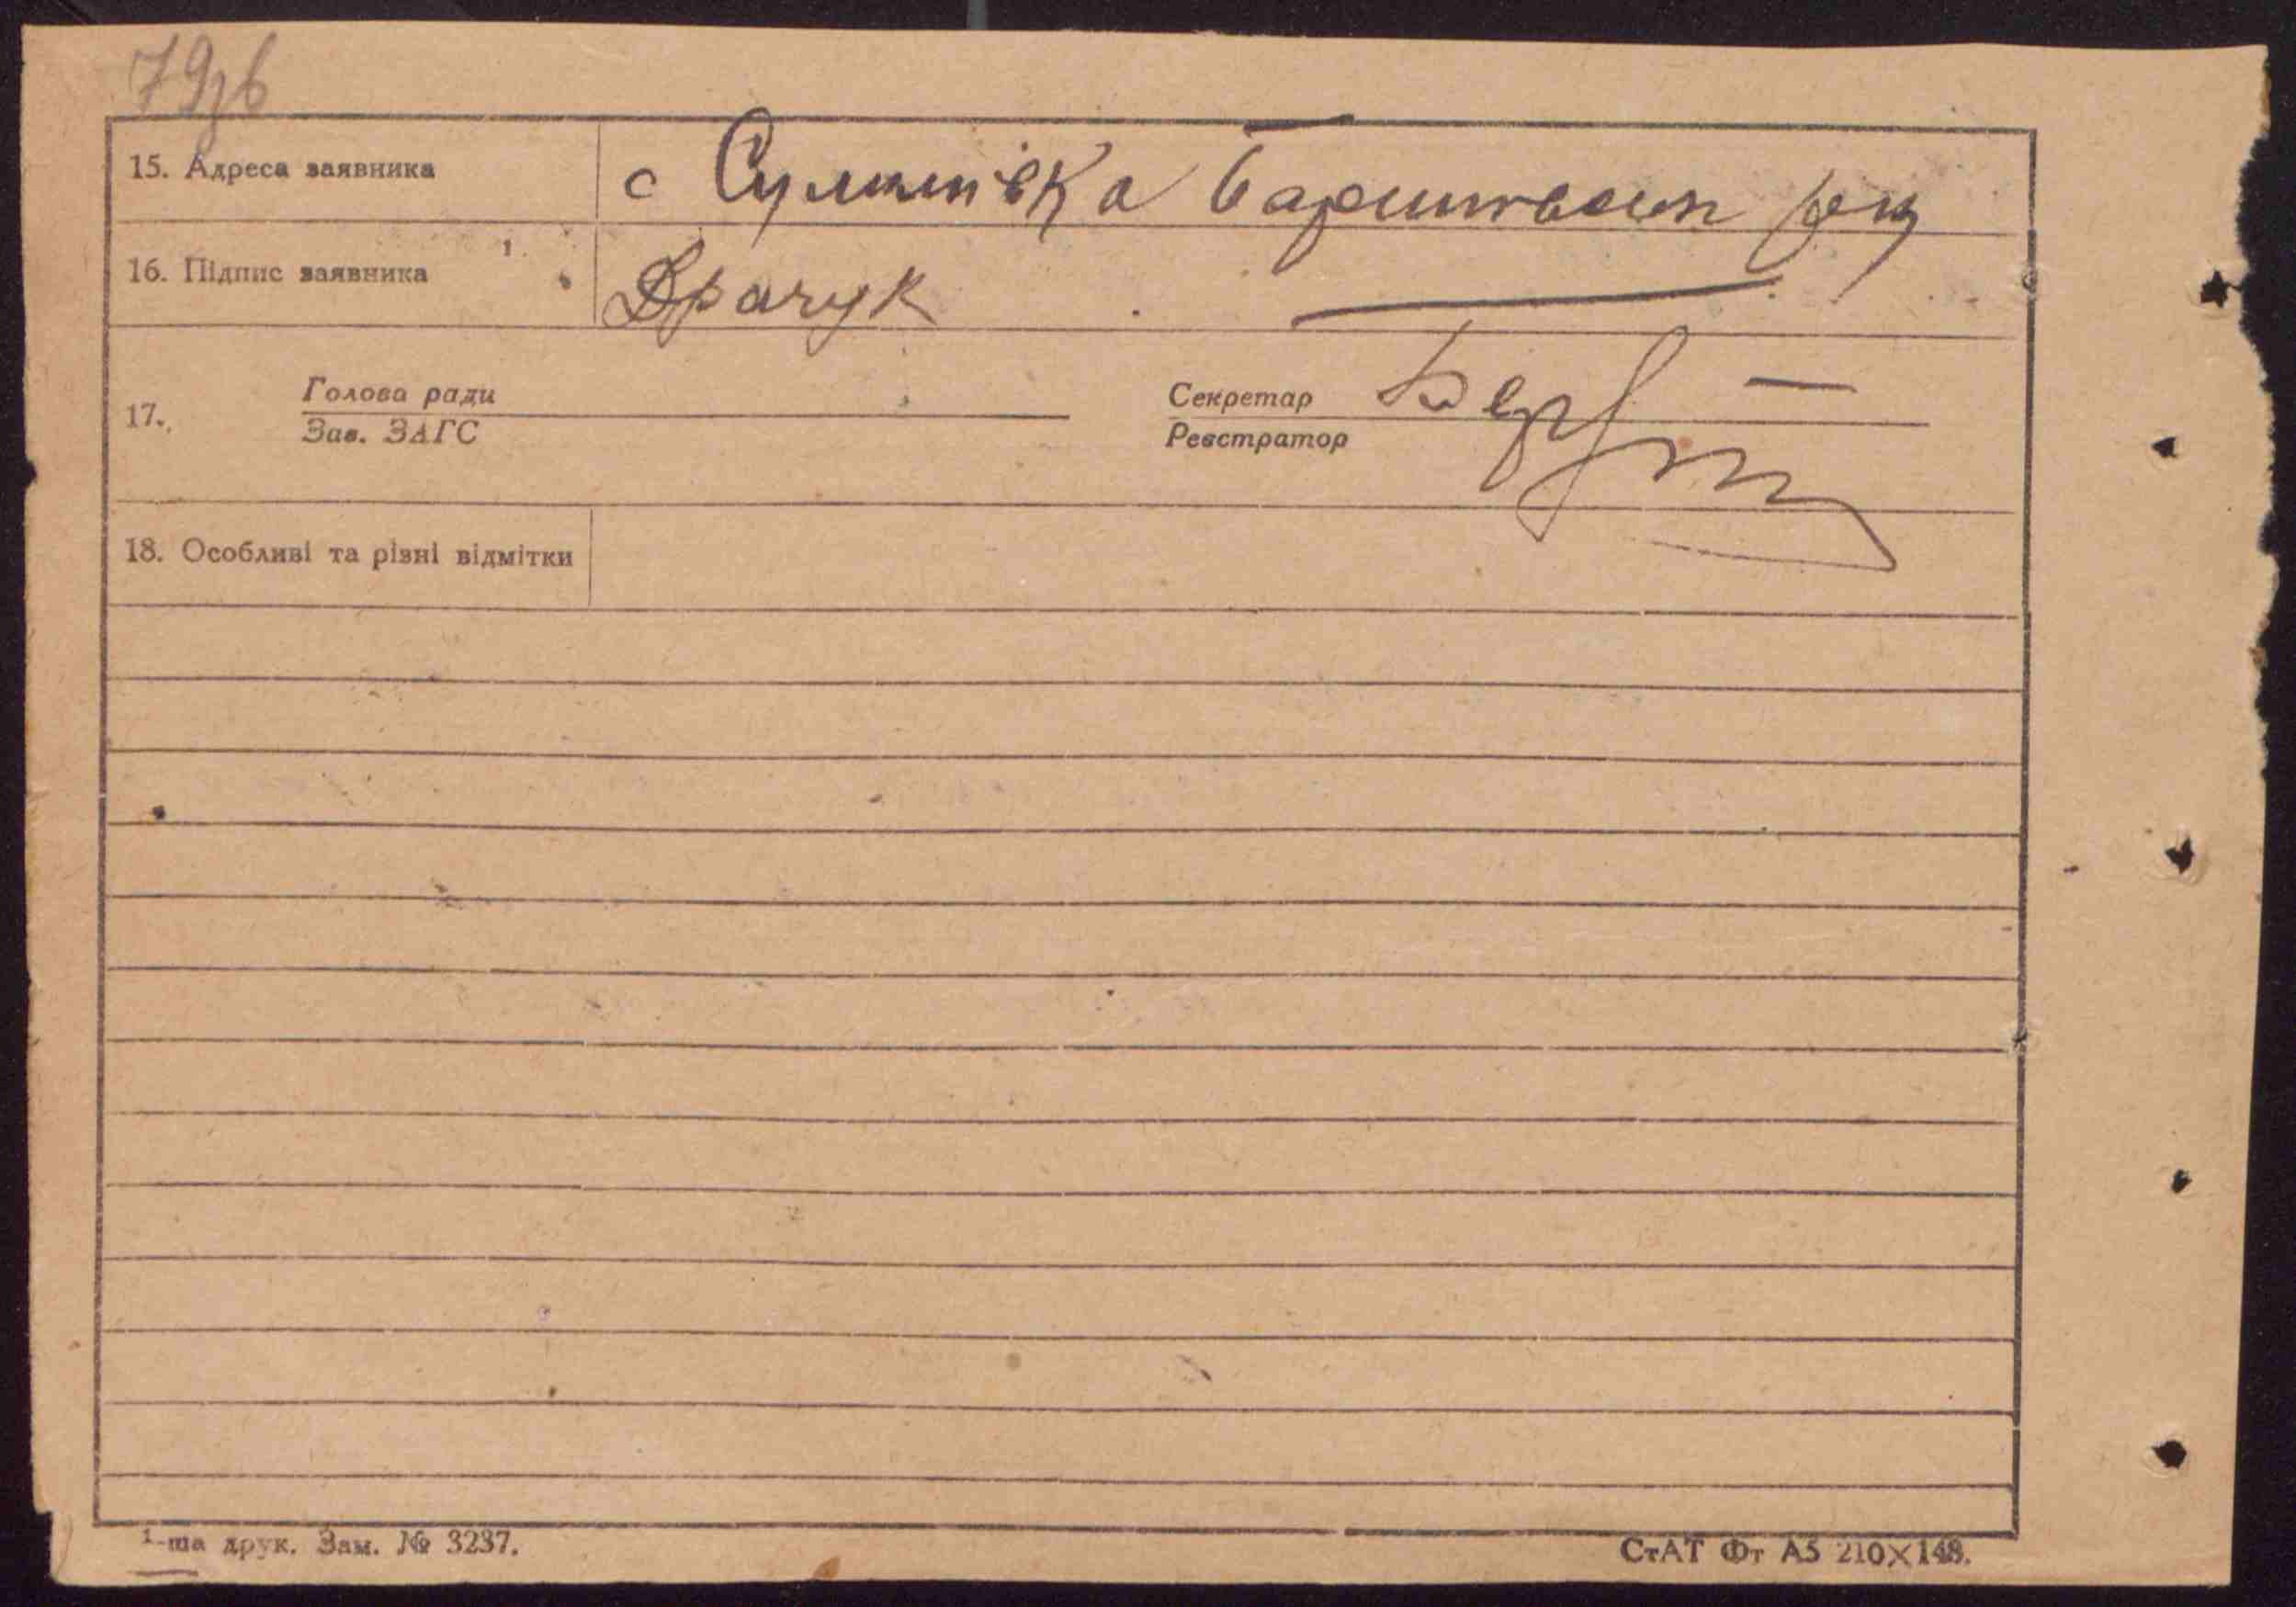 79зв
15. Адреса заявника с Сулимівка Баришівськ р-ну
16. Підпис заявника Драчук
17. Голова ради Секретар
Зав. ЗАГС Реєстратор
18. Особливі та різні відмітки
1-ша друк. Зам. № 3237. СтАТ Фт А5 210×148.